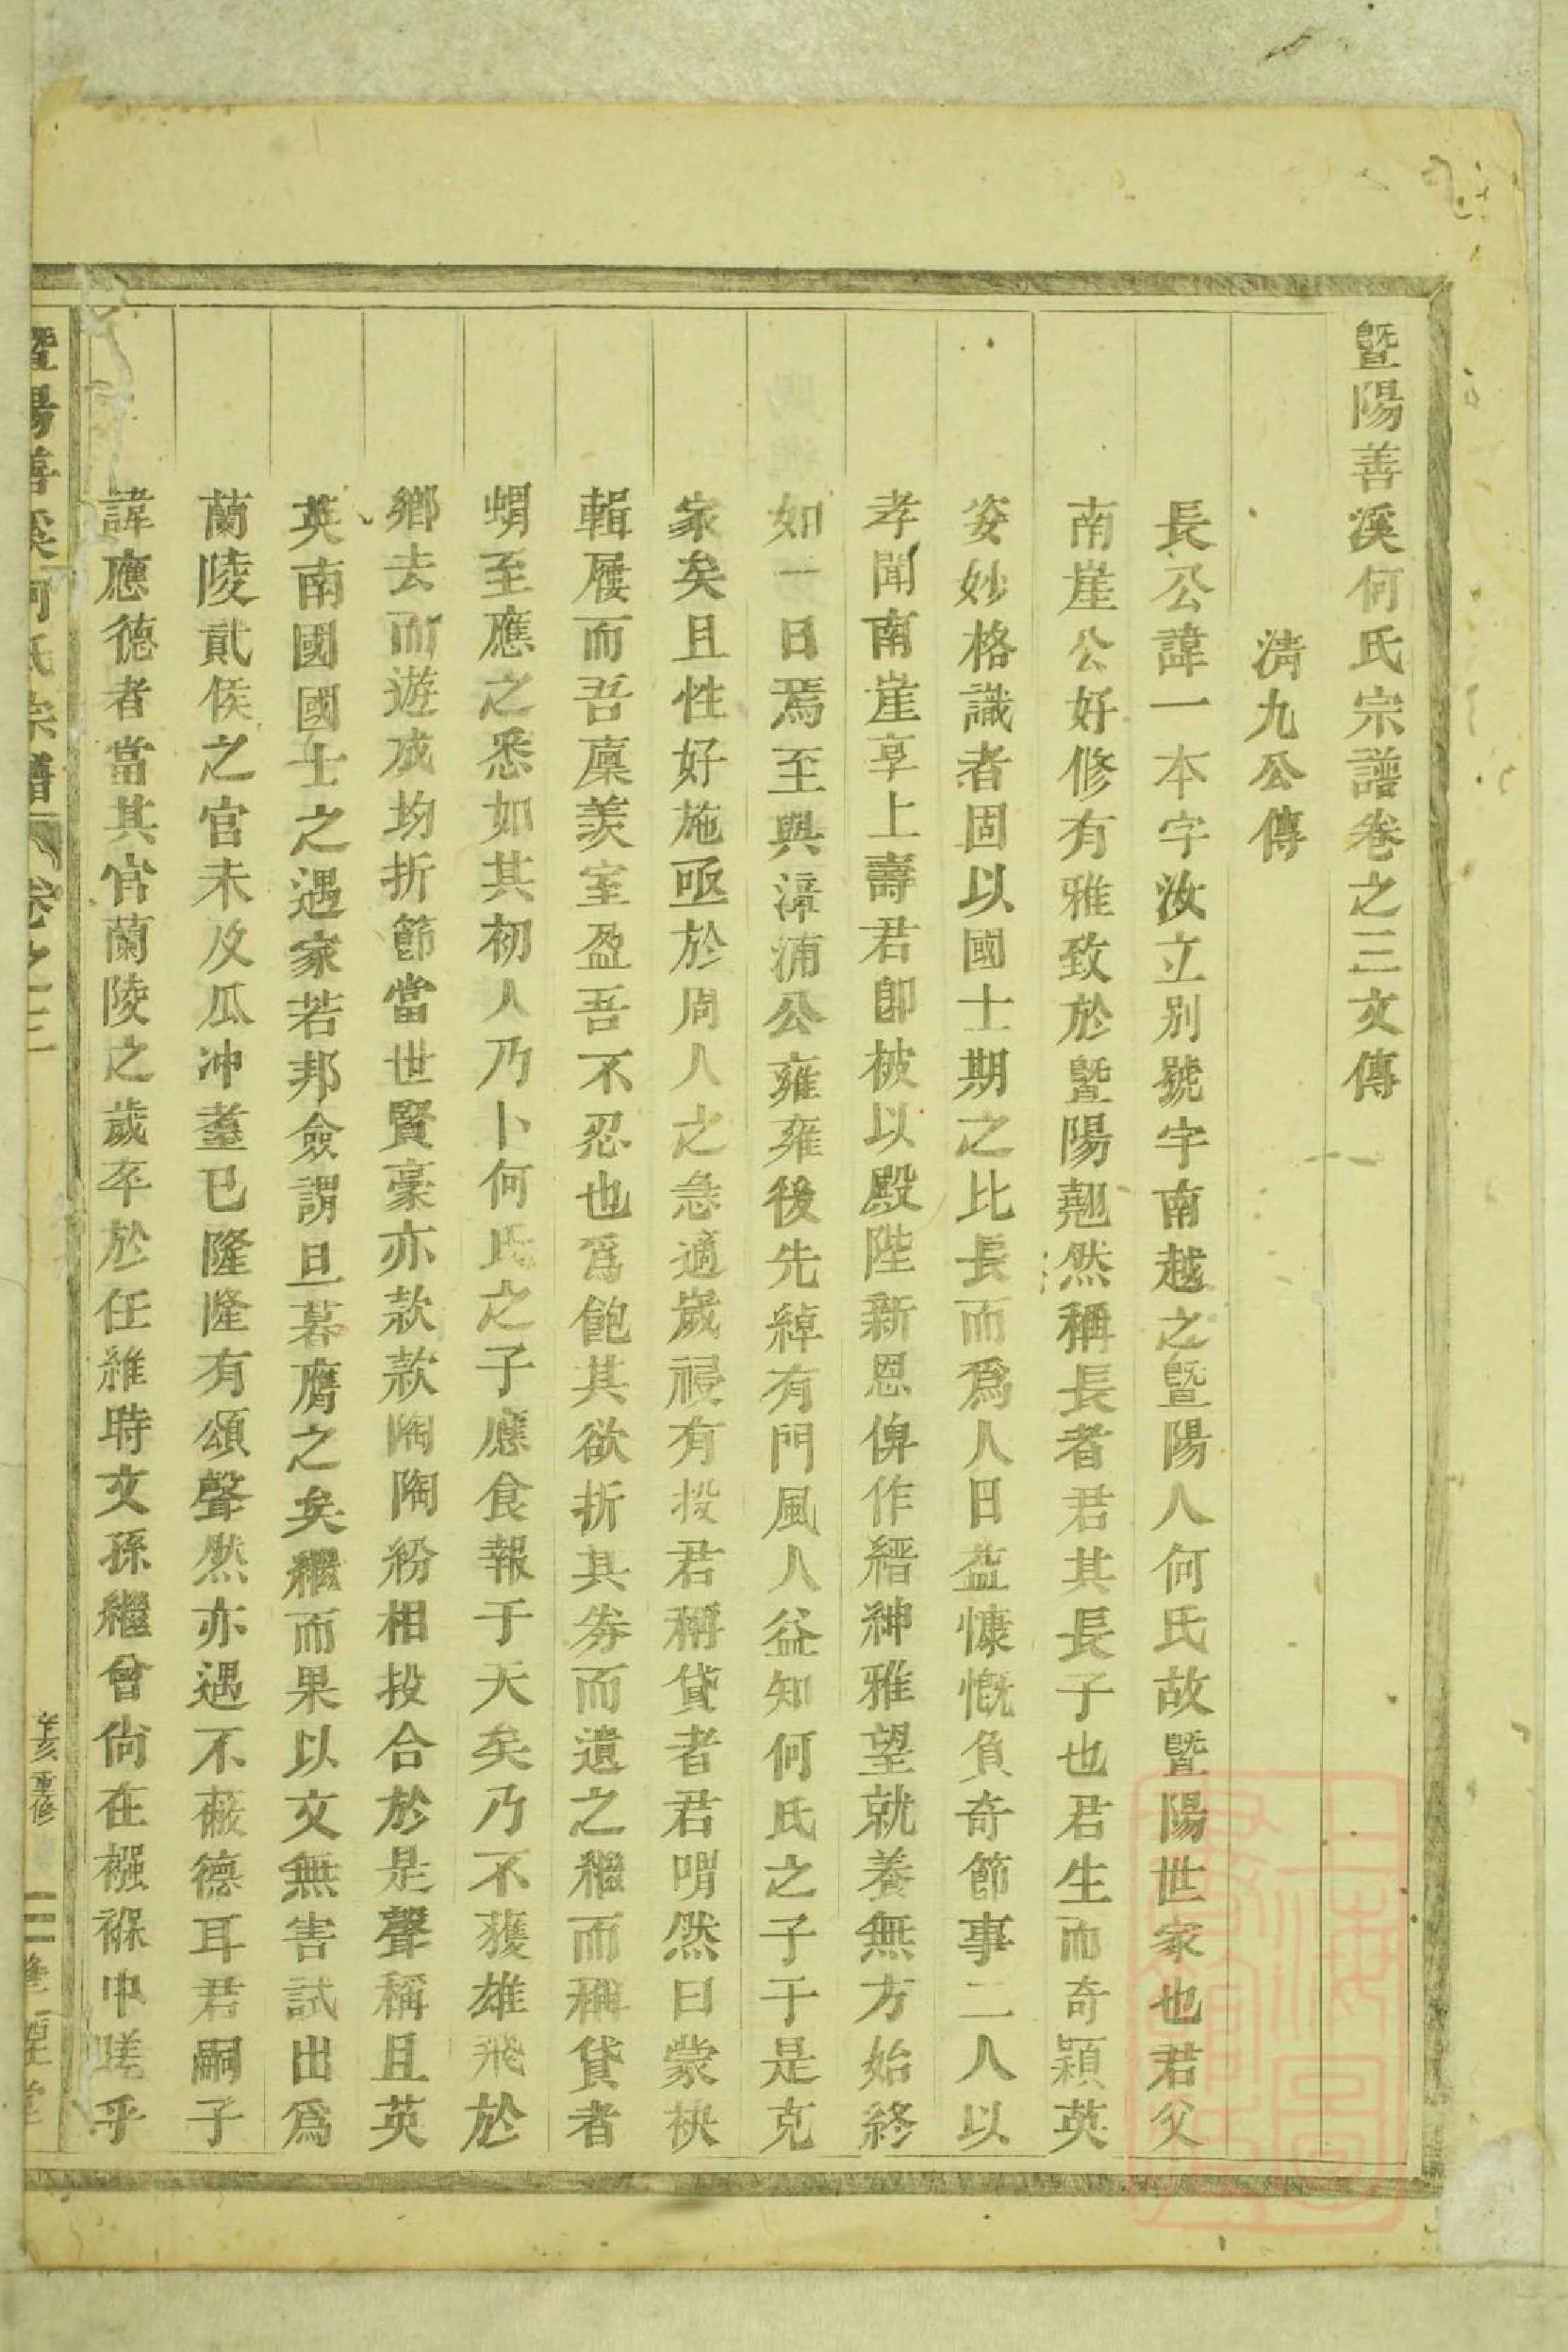 暨陽善溪何氏宗譜卷之三文傳
淸九公傳
長公諱一本字汝立別號宇南越之暨陽人何氏故暨陽世家也君父
南崖公好修有雅致於暨陽翹然稱長者君其長子也君生而奇穎英
姿妙格識者固以國士期之比長而爲人日益慷慨負奇節事二人以
孝聞南崖享上壽君卽被以殿陛新恩俾作縉紳雅望就養無方始終
如一日焉至與漳浦公雍雍後先綽有門風人益知何氏之子于是克
家矣且性好施亟於周人之急適歲祲有投君稱貸者君喟然曰蒙袂
輯屨而吾廩羨室盈吾不忍也爲飽其欲折其券而遺之繼而稱貸者
蝟至應之悉如其初人乃卜何氏之子應食報于天矣乃不獲雄飛於
鄉去而遊成均折節當世賢豪亦款款陶陶紛相投合於是聲稱且英
英南國國士之遇家若邦僉謂旦暮膺之矣繼而果以文無害試出爲
蘭陵貳侯之官未及瓜冲羞已隆隆有頌聲然亦遇不蔽德耳君嗣子
諱應德者當其官蘭陵之歲卒於任維時文孫繼曾尙在襁褓中嗟乎
暨陽善溪何氏宗譜 卷之三
辛亥重修